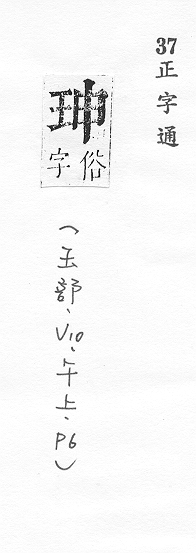 37正字通
珅
俗字
(玉部、V10、午上、P6)